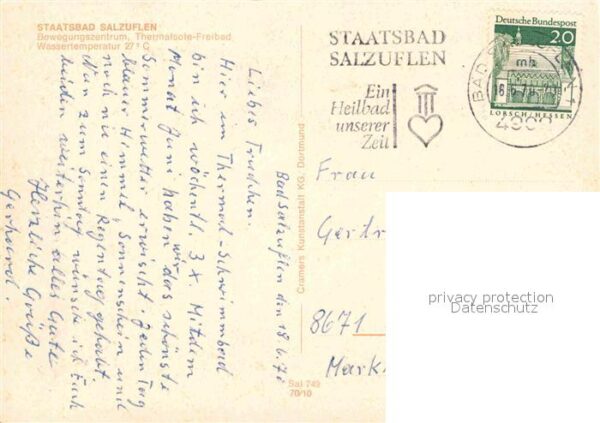 STAATSBAD SALZUFLEN
Bewegungszentrum, Thermalsole-Freibad
Wassertemperatur 27° C
Bad Salzuflen den 18.6.70
Liebes Trudchen.
Hier im Thermal-Schwimmbad
bin ich wöchentl. 3 x. Mit dem
Monat Juni haben wir das schönste
Sommerwetter erwischt. Jeden Tag
blauer Himmel, Sonnenschein und
noch nie einen Regentag gehabt.
Nun zum Sonntag wünsche ich Euch
beiden weiterhin alles Gute
Herzliche Grüße
Gerhard.
Cramers Kunstanstalt KG, Dortmund
Sal 749
70/10
STAATSBAD
SALZUFLEN
Ein
Heilbad
unserer
Zeit
BAD
4902
Deutsche Bundespost
20
LORSCH/HESSEN
Frau
Gertr
8671
Mark
privacy protection
Datenschutz